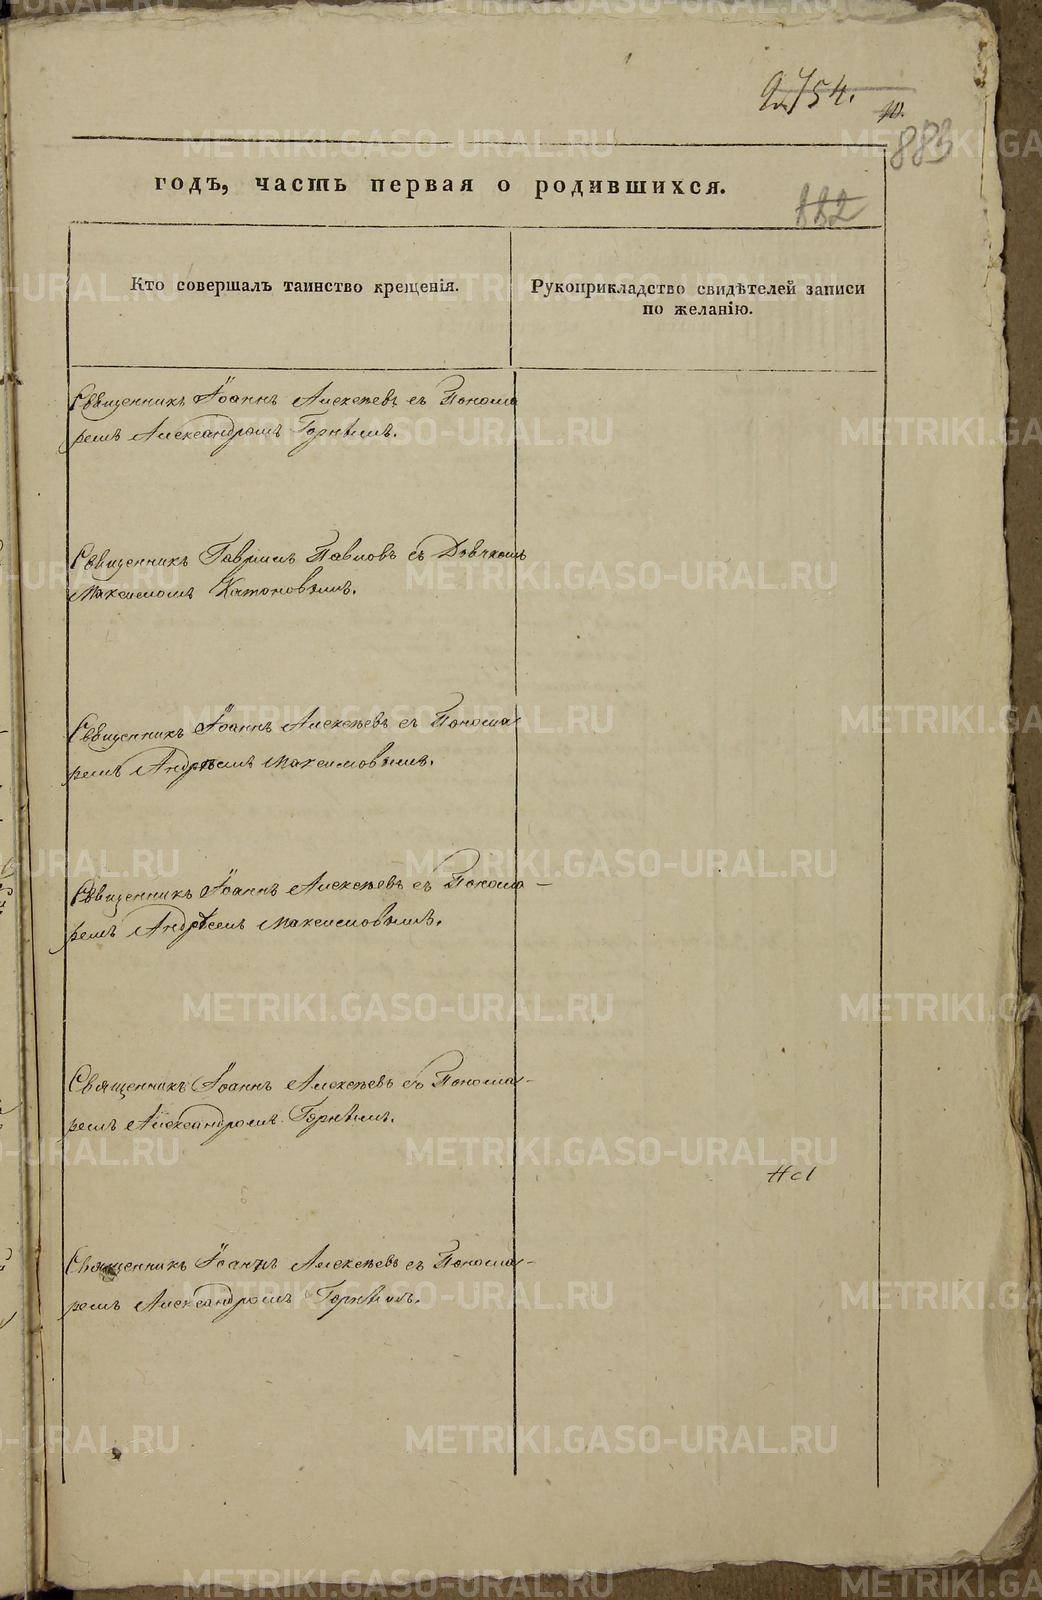 754.
10.
883
882
годъ, часть первая о родившихся.
Кто совершалъ таинство крещенія.
Рукоприкладство свидѣтелей записи
по желанію.
Священникъ Іоаннъ Алексѣевъ съ Понома
ремъ Александромъ Горнымъ.
Священникъ Гавріилъ Павловъ съ Дьячкомъ
Максимомъ Катоновымъ.
Священникъ Іоаннъ Алексѣевъ съ Понома
ремъ Андрѣемъ Максимовымъ.
Священникъ Іоаннъ Алексѣевъ съ Понома-
ремъ Андрѣемъ Максимовымъ.
Священникъ Іоаннъ Алексѣевъ съ Понома-
ремъ Александромъ Горнымъ.
Священникъ Іоаннъ Алексѣевъ съ Понома-
ремъ Александромъ Горнымъ.
METRIKI.GASO-URAL.RU